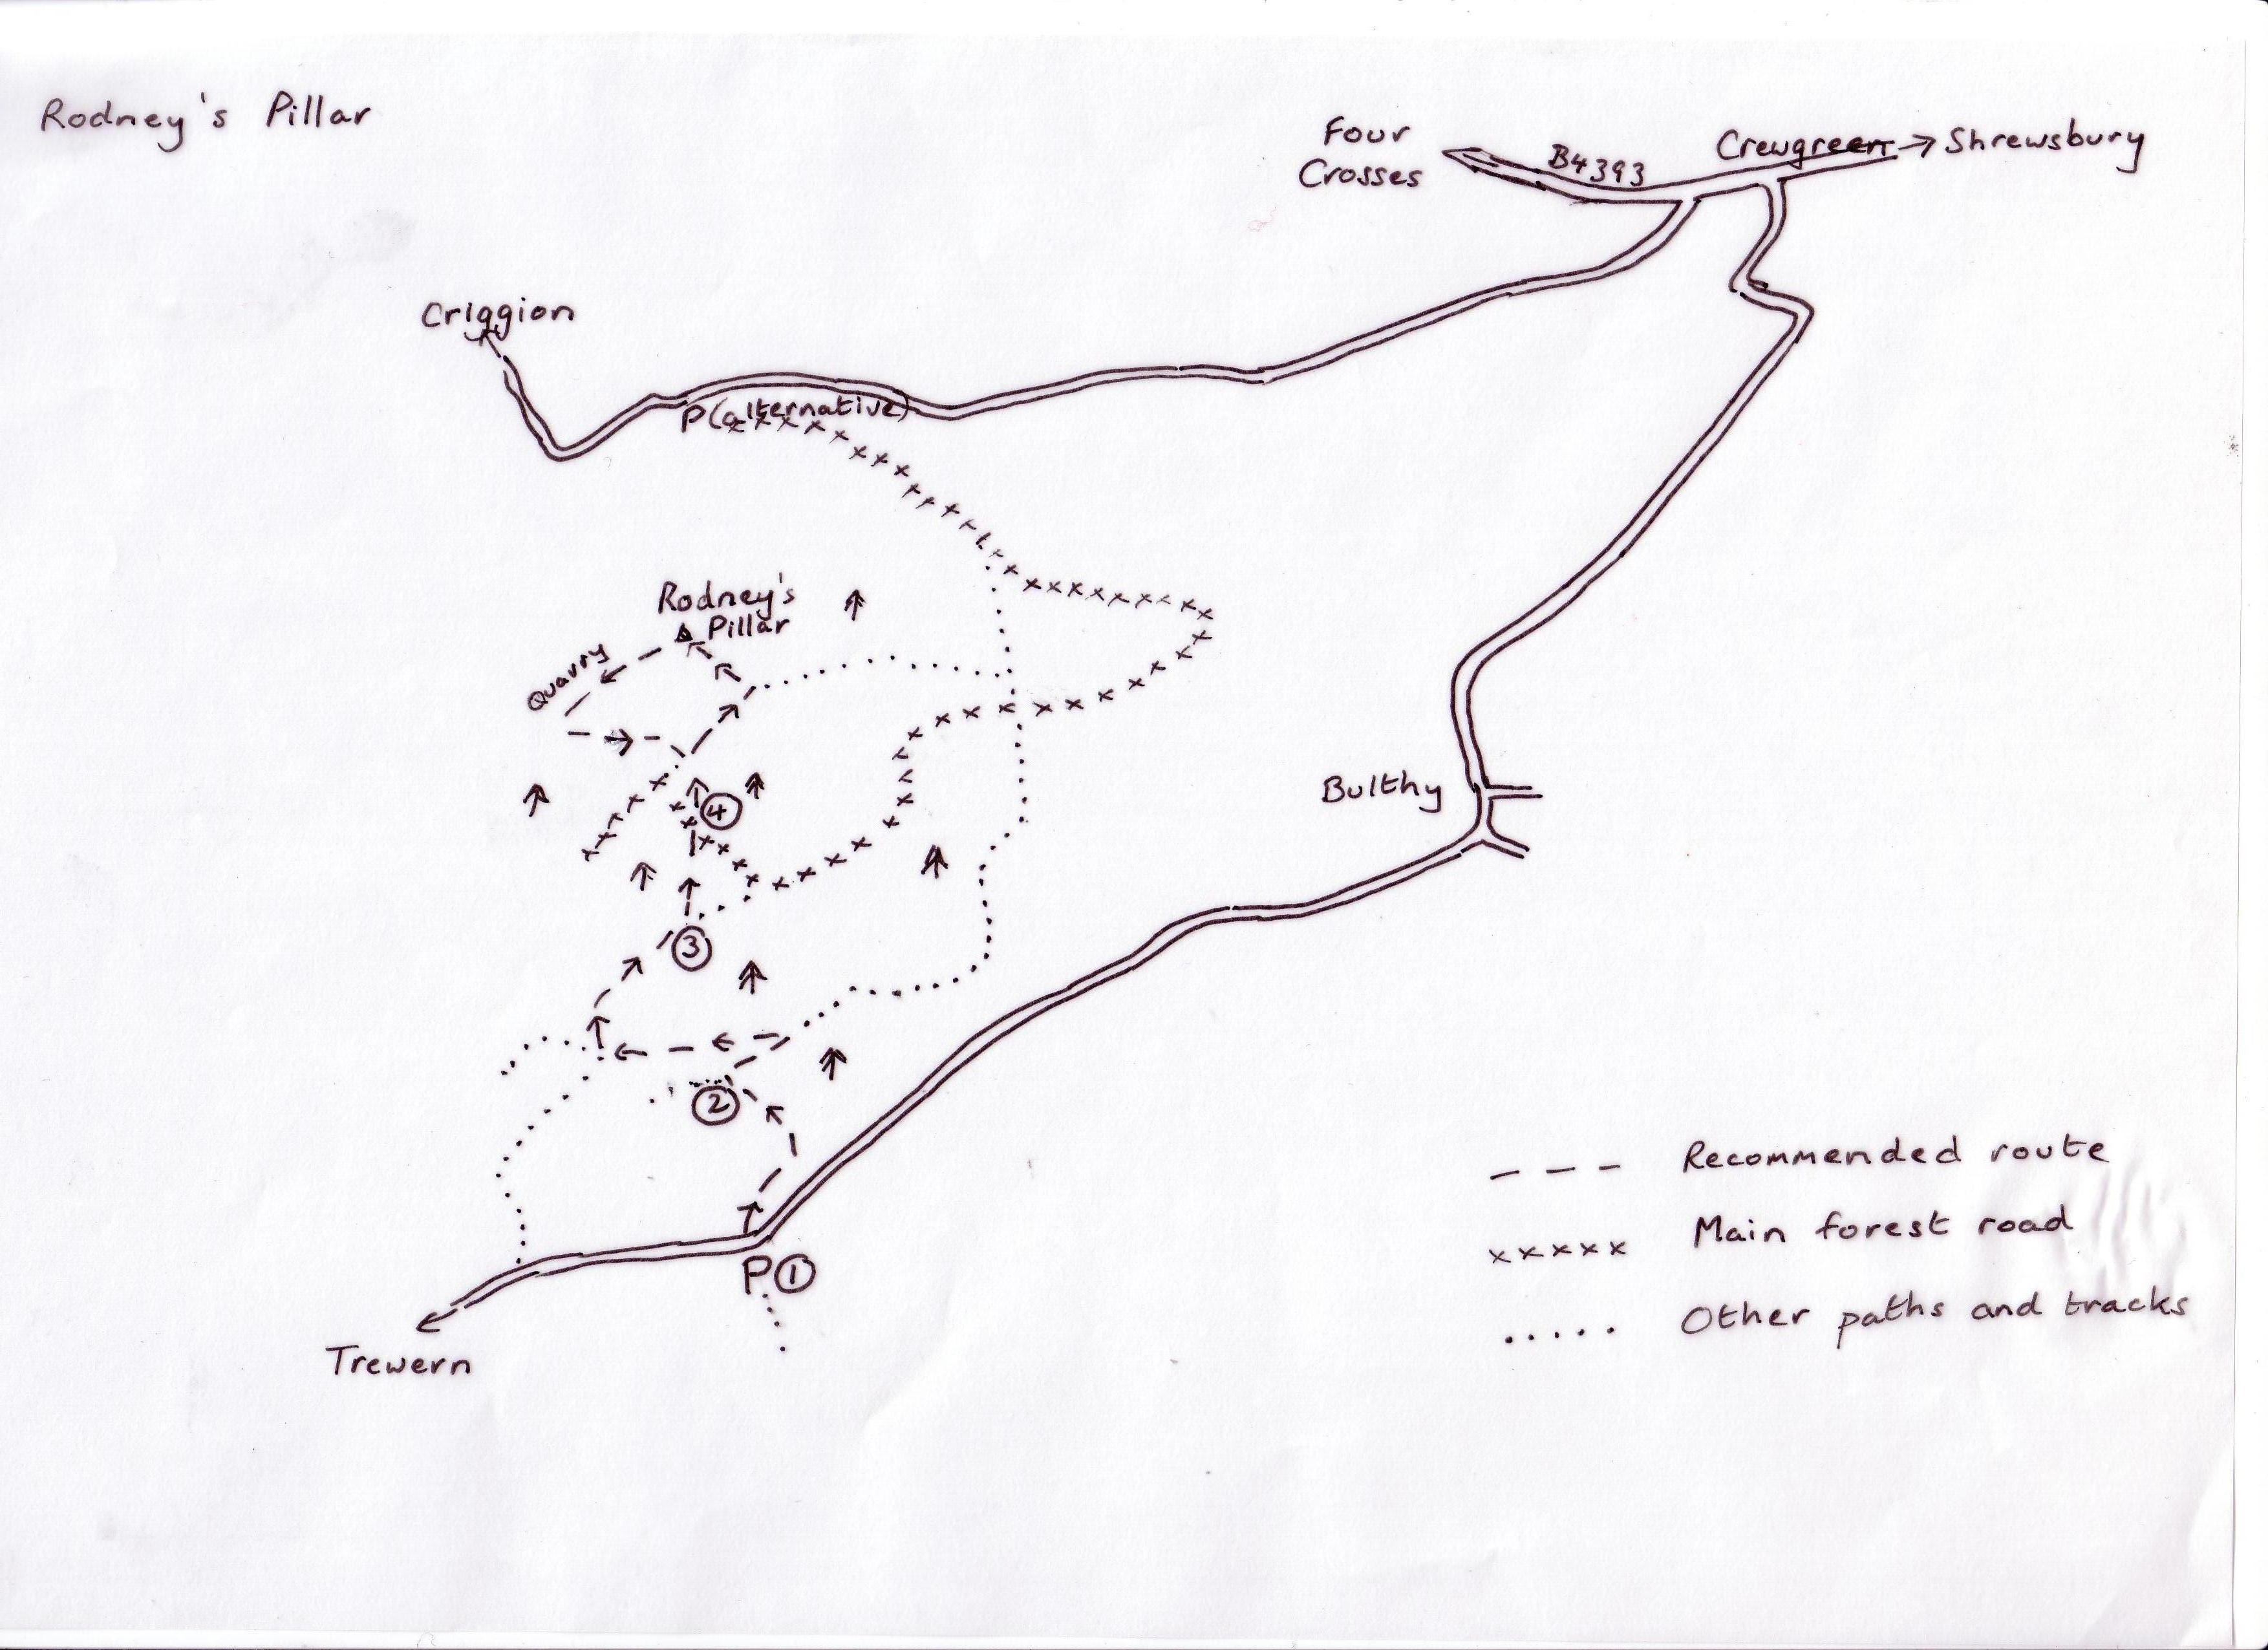 Rodney's Pillar
Four
Crosses
B4393
Crewgreen
Shrewsbury
Criggion
P(alternative)
Rodney's
Pillar
Quarry
4
Bulthy
3
2
P 1
Trewern
Recommended route
Main forest road
Other paths and tracks